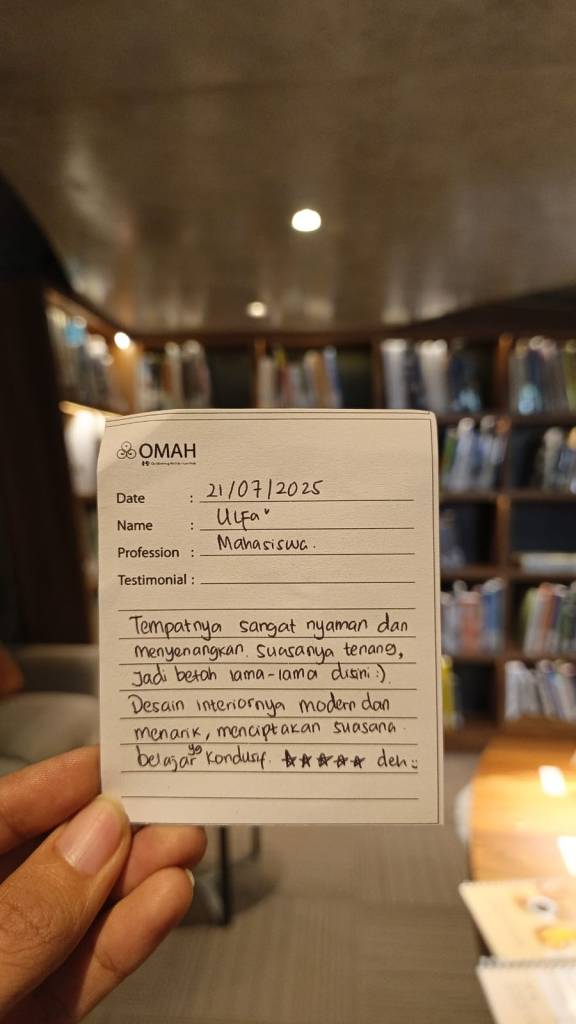 OMAH
Date : 21/07/2025
Name : Ulfa
Profession : Mahasiswa.
Testimonial :
Tempatnya sangat nyaman dan
menyenangkan. Suasanya tenang,
Jadi betah lama-lama disini :)
Desain interiornya modern dan
menarik, menciptakan suasana
belajar yg kondusif. ★★★★★ deh :)